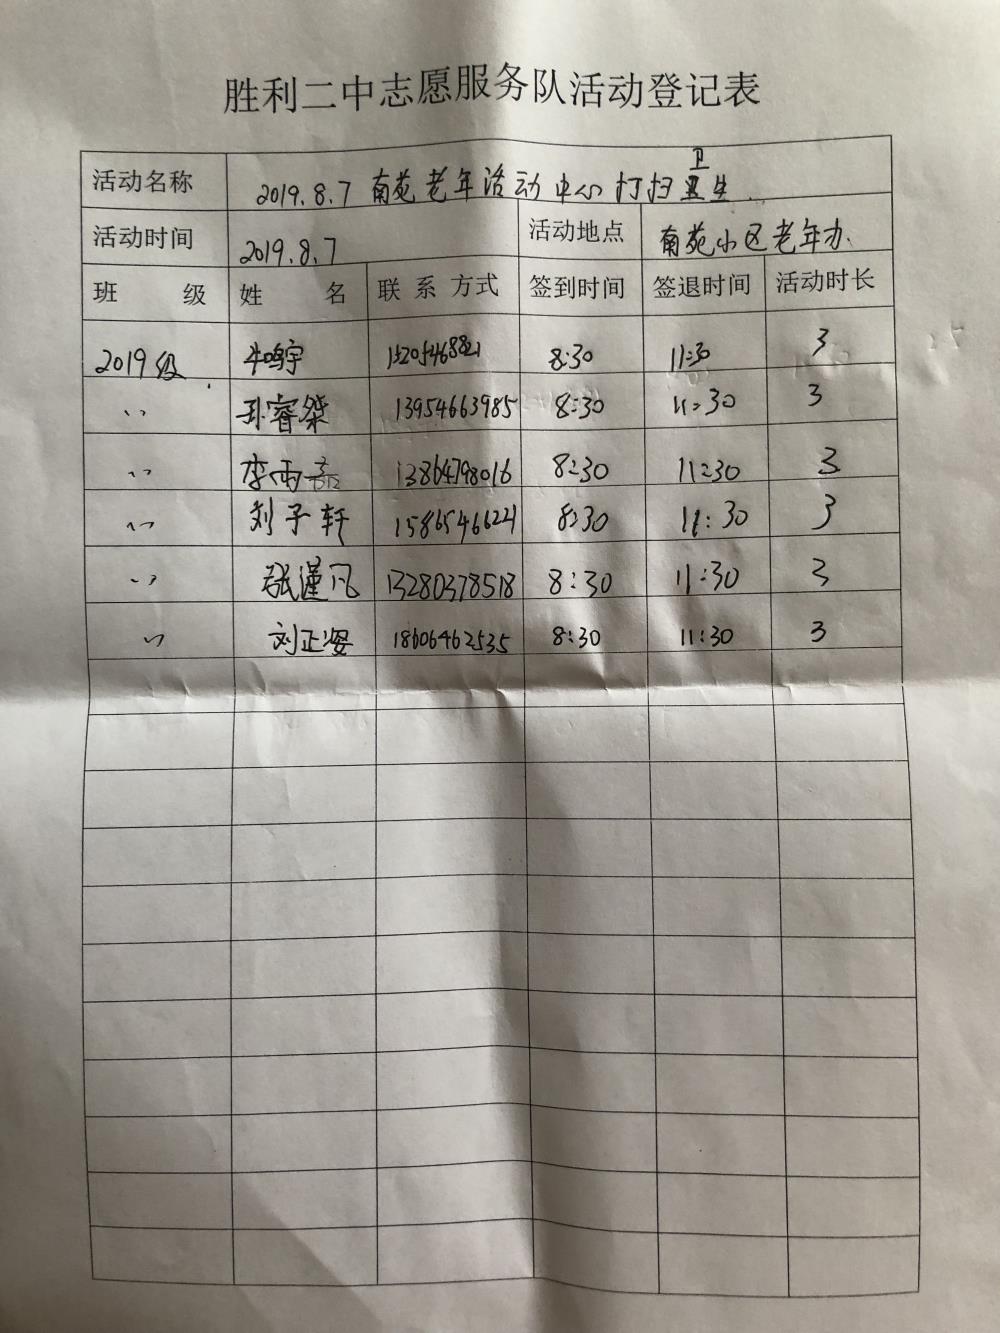 胜利二中志愿服务队活动登记表
活动名称 2019.8.7 南苑老年活动中心打扫卫生
活动时间 2019.8.7 活动地点 南苑小区老年办
班 级 姓 名 联 系 方式 签到时间 签退时间 活动时长
2019级 牛鸣宇 8:30 11:30 3
〃 孙睿桀 13954663985 8:30 11:30 3
〃 李雨 13864798016 8:30 11:30 3
〃 刘子轩 15865466221 8:30 11:30 3
〃 张瑾凡 13280378518 8:30 11:30 3
〃 刘正姿 18606462535 8:30 11:30 3